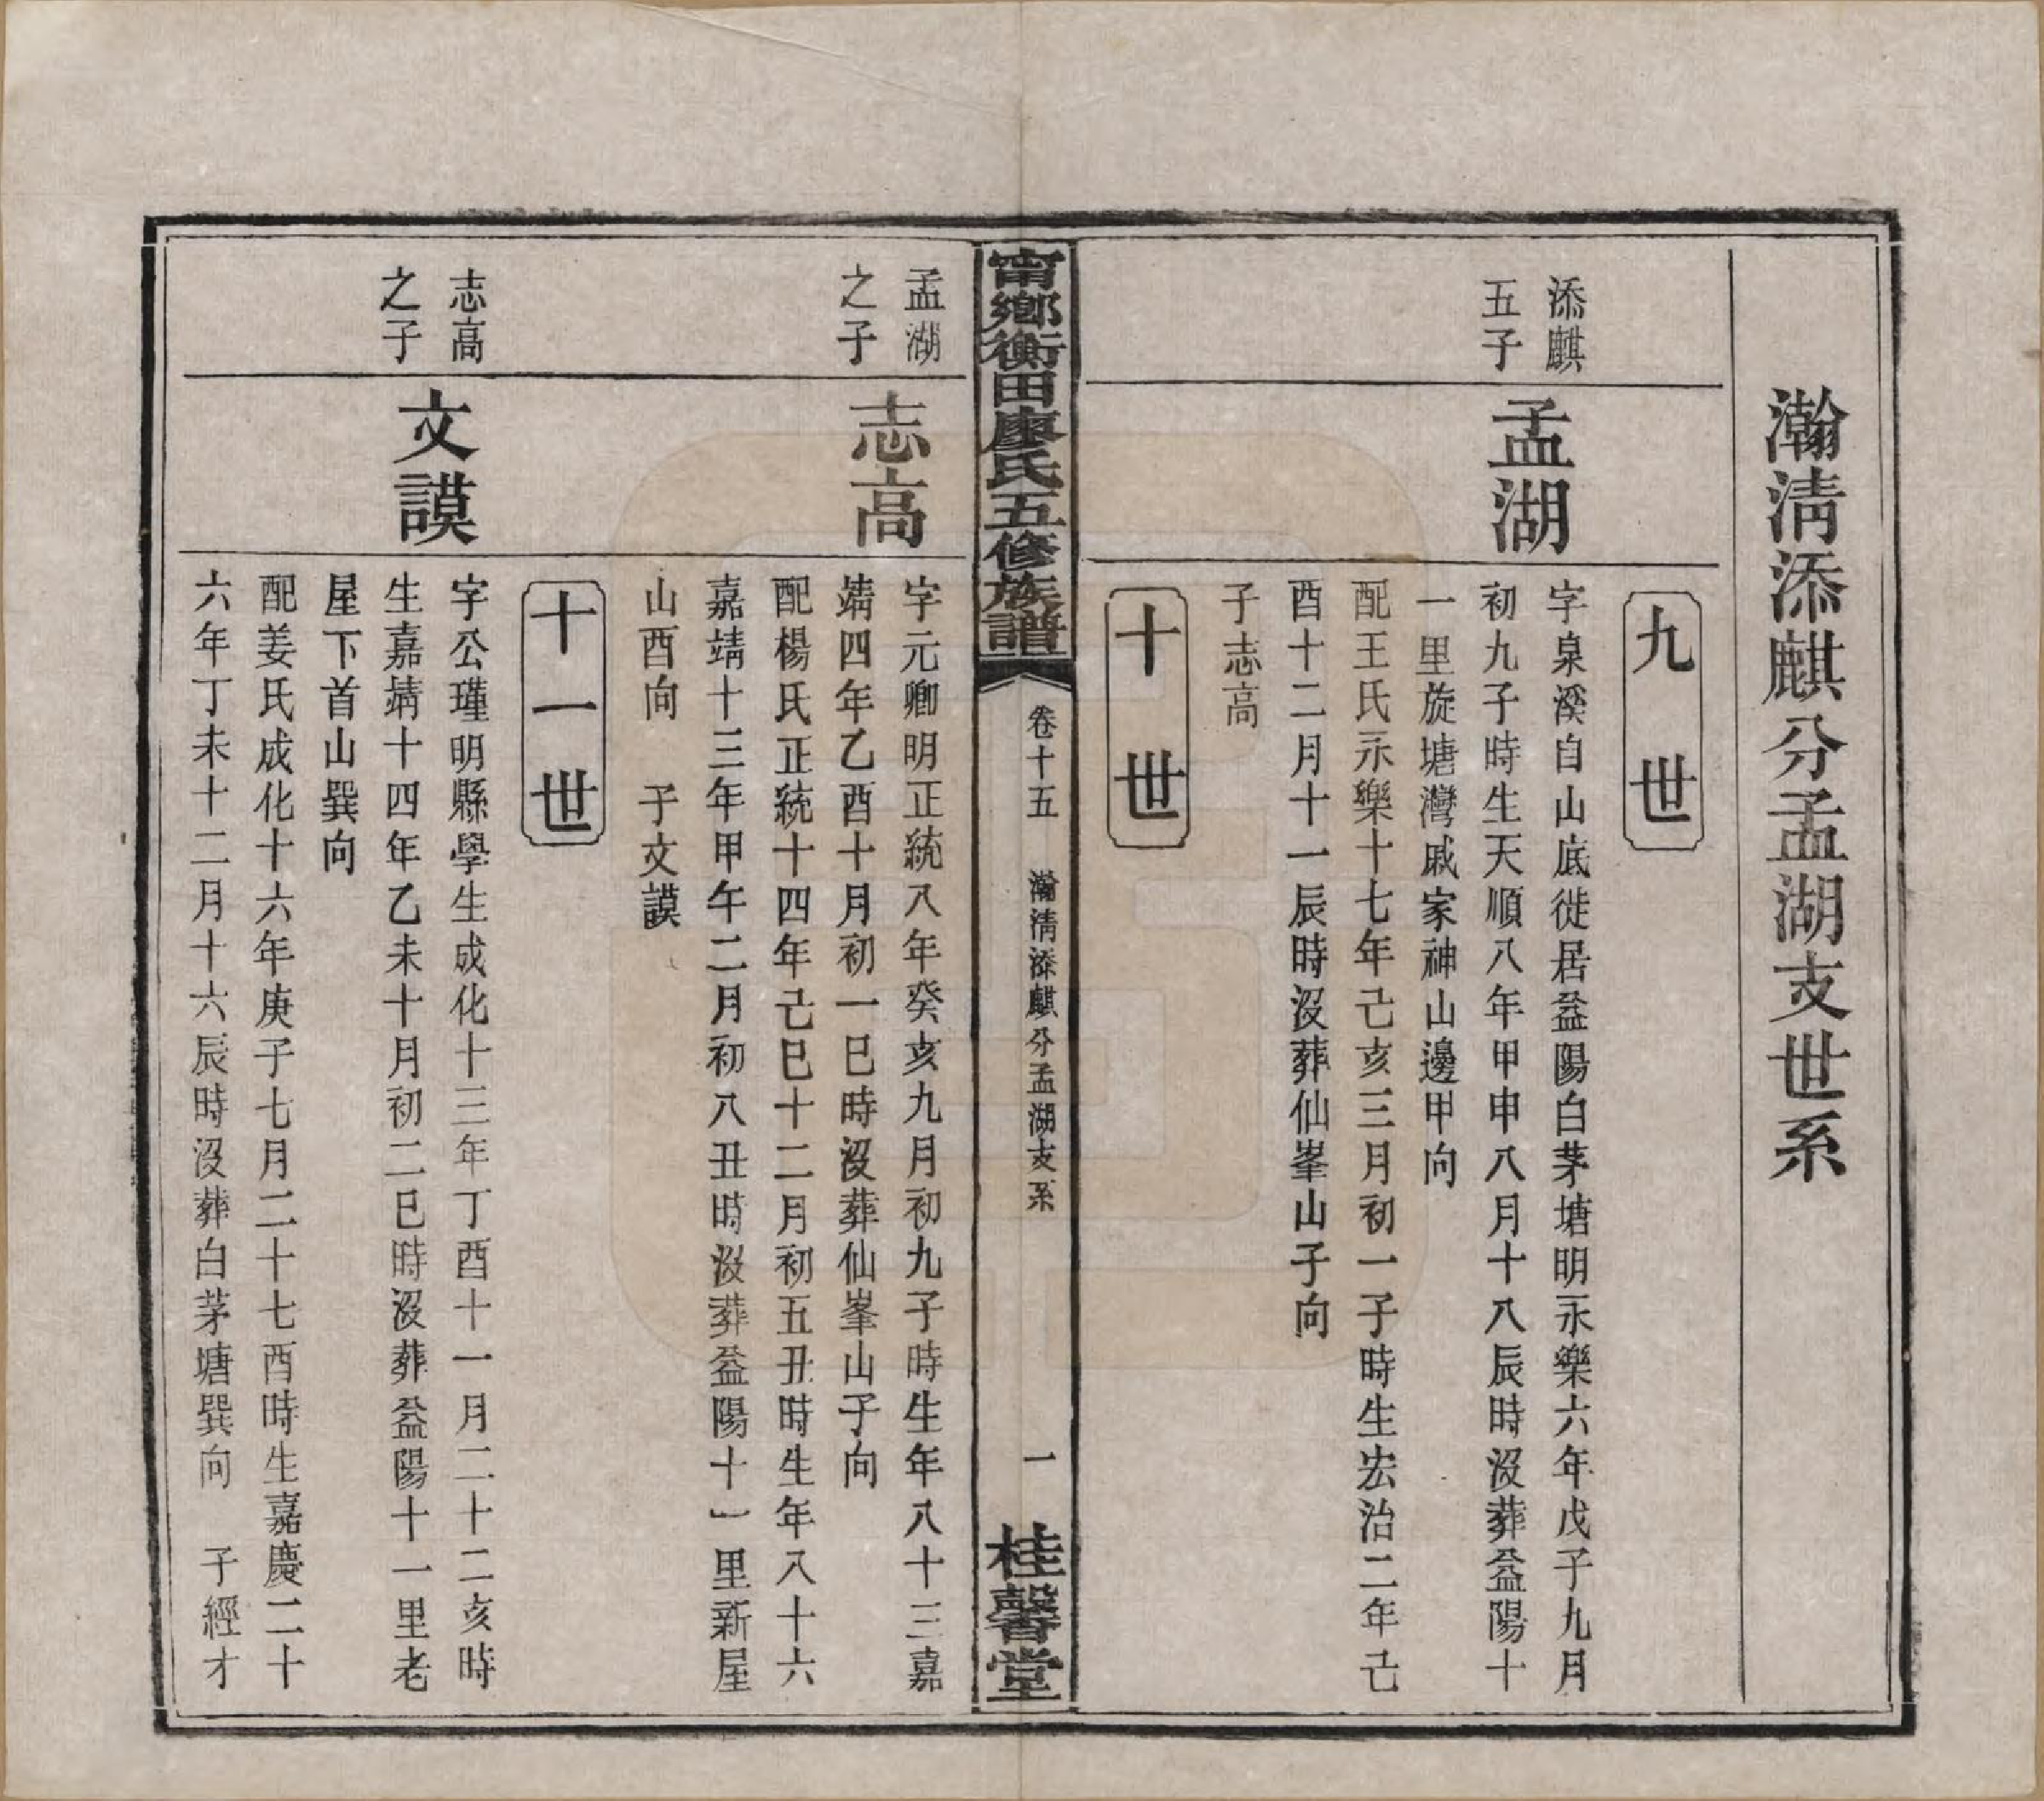 瀚清添麒分孟湖支世系
九世
添麒
五子
孟湖
字泉溪自山底徙居益陽白茅塘明永樂六年戊子九月
初九子時生天順八年甲申八月十八辰時沒葬益陽十
一里旋塘灣戚家神山邊甲向
配王氏永樂十七年己亥三月初一子時生宏治二年己
酉十二月十一辰時沒葬仙峯山子向
子志高
十世
甯鄉衡田廖氏五修族譜
卷十五
瀚清添麒分孟湖支系
一
桂馨堂
孟湖
之子
志高
字元卿明正統八年癸亥九月初九子時生年八十三嘉
靖四年乙酉十月初一巳時沒葬仙峯山子向
配楊氏正統十四年己巳十二月初五丑時生年八十六
嘉靖十三年甲午二月初八丑時沒葬益陽十一里新屋
山酉向 子文謨
十一世
志高
之子
文謨
字公瑾明縣學生成化十三年丁酉十一月二十二亥時
生嘉靖十四年乙未十月初二巳時沒葬益陽十一里老
屋下首山巽向
配姜氏成化十六年庚子七月二十七酉時生嘉慶二十
六年丁未十二月十六辰時沒葬白茅塘巽向 子經才